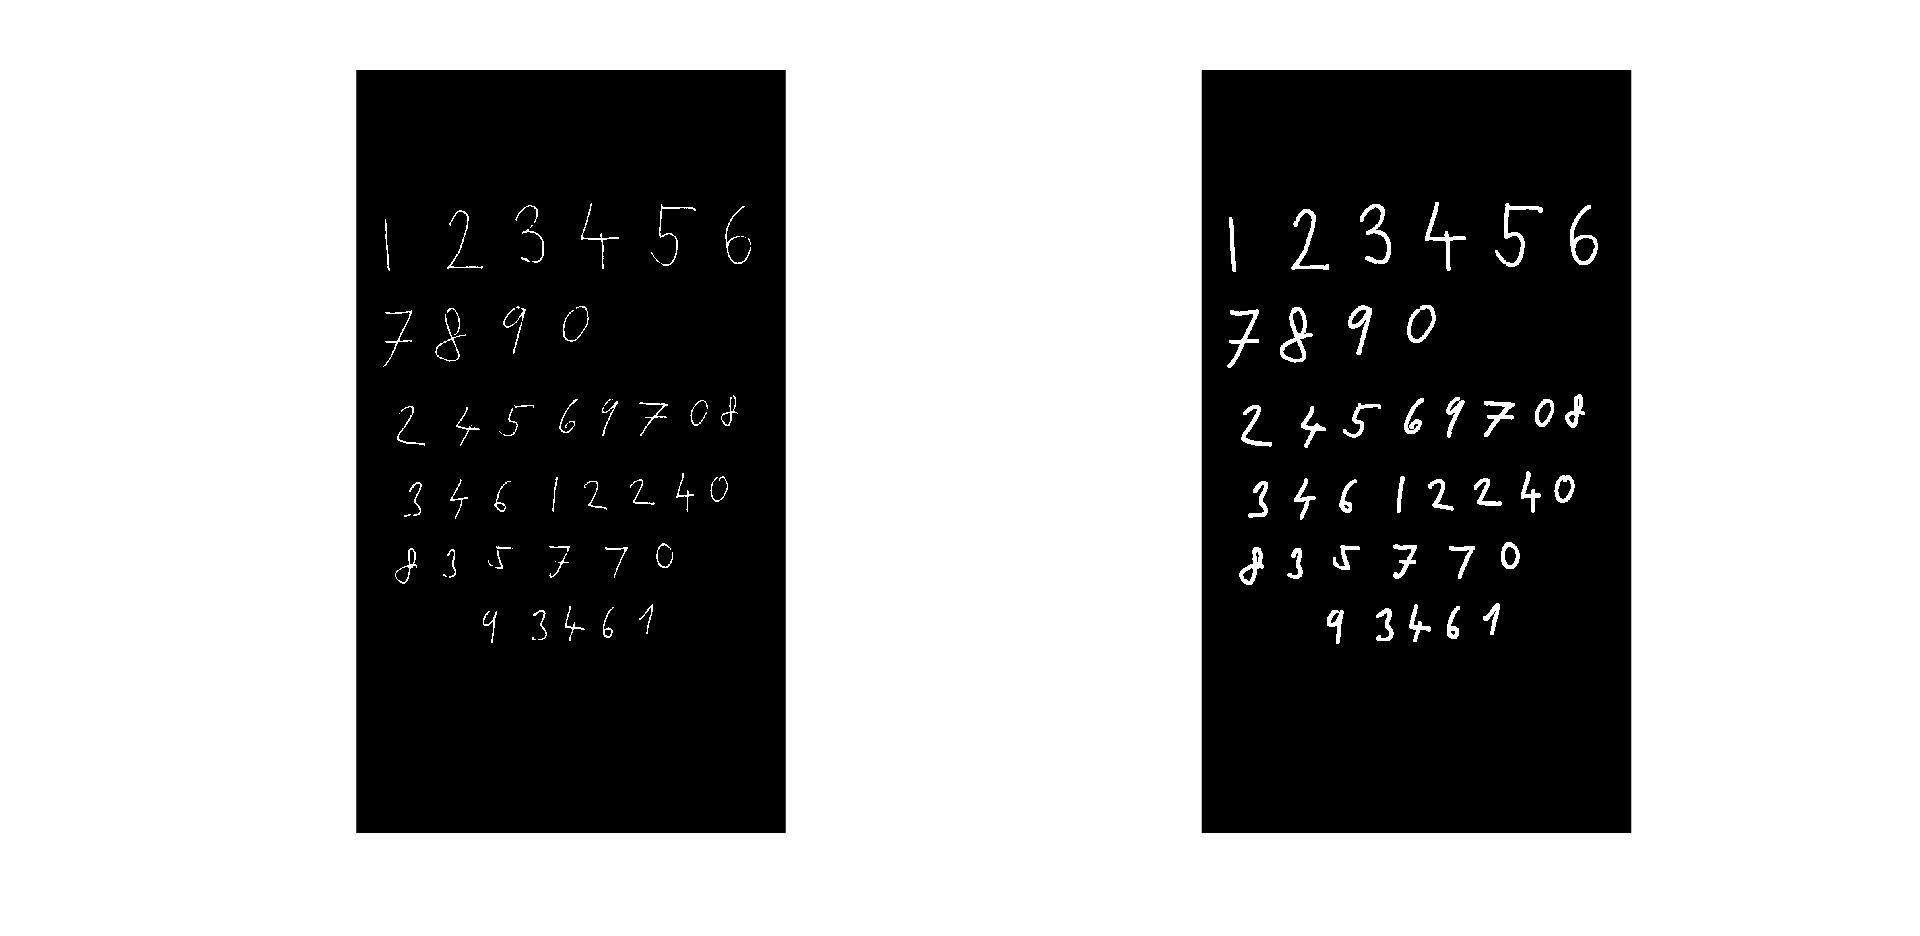 1 2 3 4 5 6
7 8 9 0
2 4 5 6 9 7 0 8
3 4 6 1 2 2 4 0
8 3 5 7 7 0
9 3 4 6 1
1 2 3 4 5 6
7 8 9 0
2 4 5 6 9 7 0 8
3 4 6 1 2 2 4 0
8 3 5 7 7 0
9 3 4 6 1